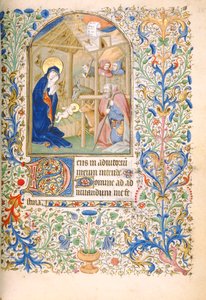 Deus in adiutoriu
meum intende
Domine ad ad
iuuandum me fes
tina